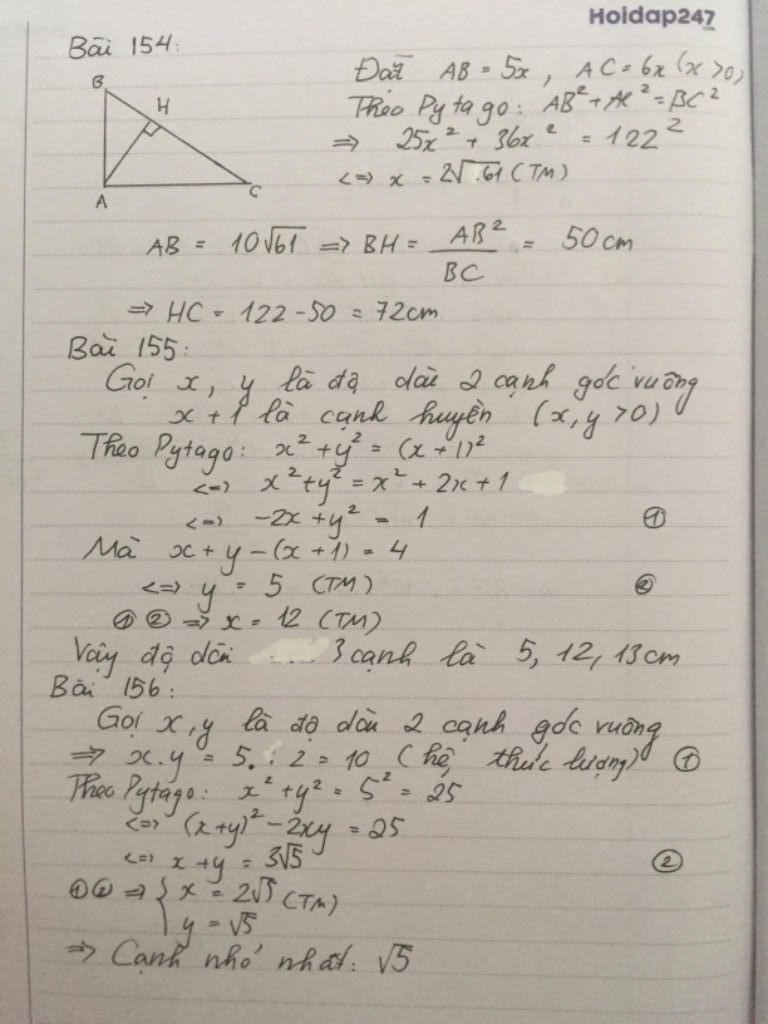 Hoidap247
Bài 154:
B
H
A
C
Đặt AB = 5x, AC = 6x (x > 0)
Theo Pytago: AB² + AC² = BC²
=> 25x² + 36x² = 122²
<=> x = 2√61 (TM)
AB = 10√61 => BH = AB²/BC = 50cm
=> HC = 122 - 50 = 72cm
Bài 155:
Gọi x, y là độ dài 2 cạnh góc vuông
x + 1 là cạnh huyền (x, y > 0)
Theo Pytago: x² + y² = (x + 1)²
<=> x² + y² = x² + 2x + 1
<=> -2x + y² = 1 ①
Mà x + y - (x + 1) = 4
<=> y = 5 (TM) ②
① ② => x = 12 (TM)
Vậy độ dài 3 cạnh là 5, 12, 13cm
Bài 156:
Gọi x, y là độ dài 2 cạnh góc vuông
=> x.y = 5 . 2 = 10 (hệ thức lượng) ①
Theo Pytago: x² + y² = 5² = 25
<=> (x+y)² - 2xy = 25
<=> x + y = 3√5 ②
① ② => { x = 2√5 (TM)
y = √5
=> Cạnh nhỏ nhất: √5